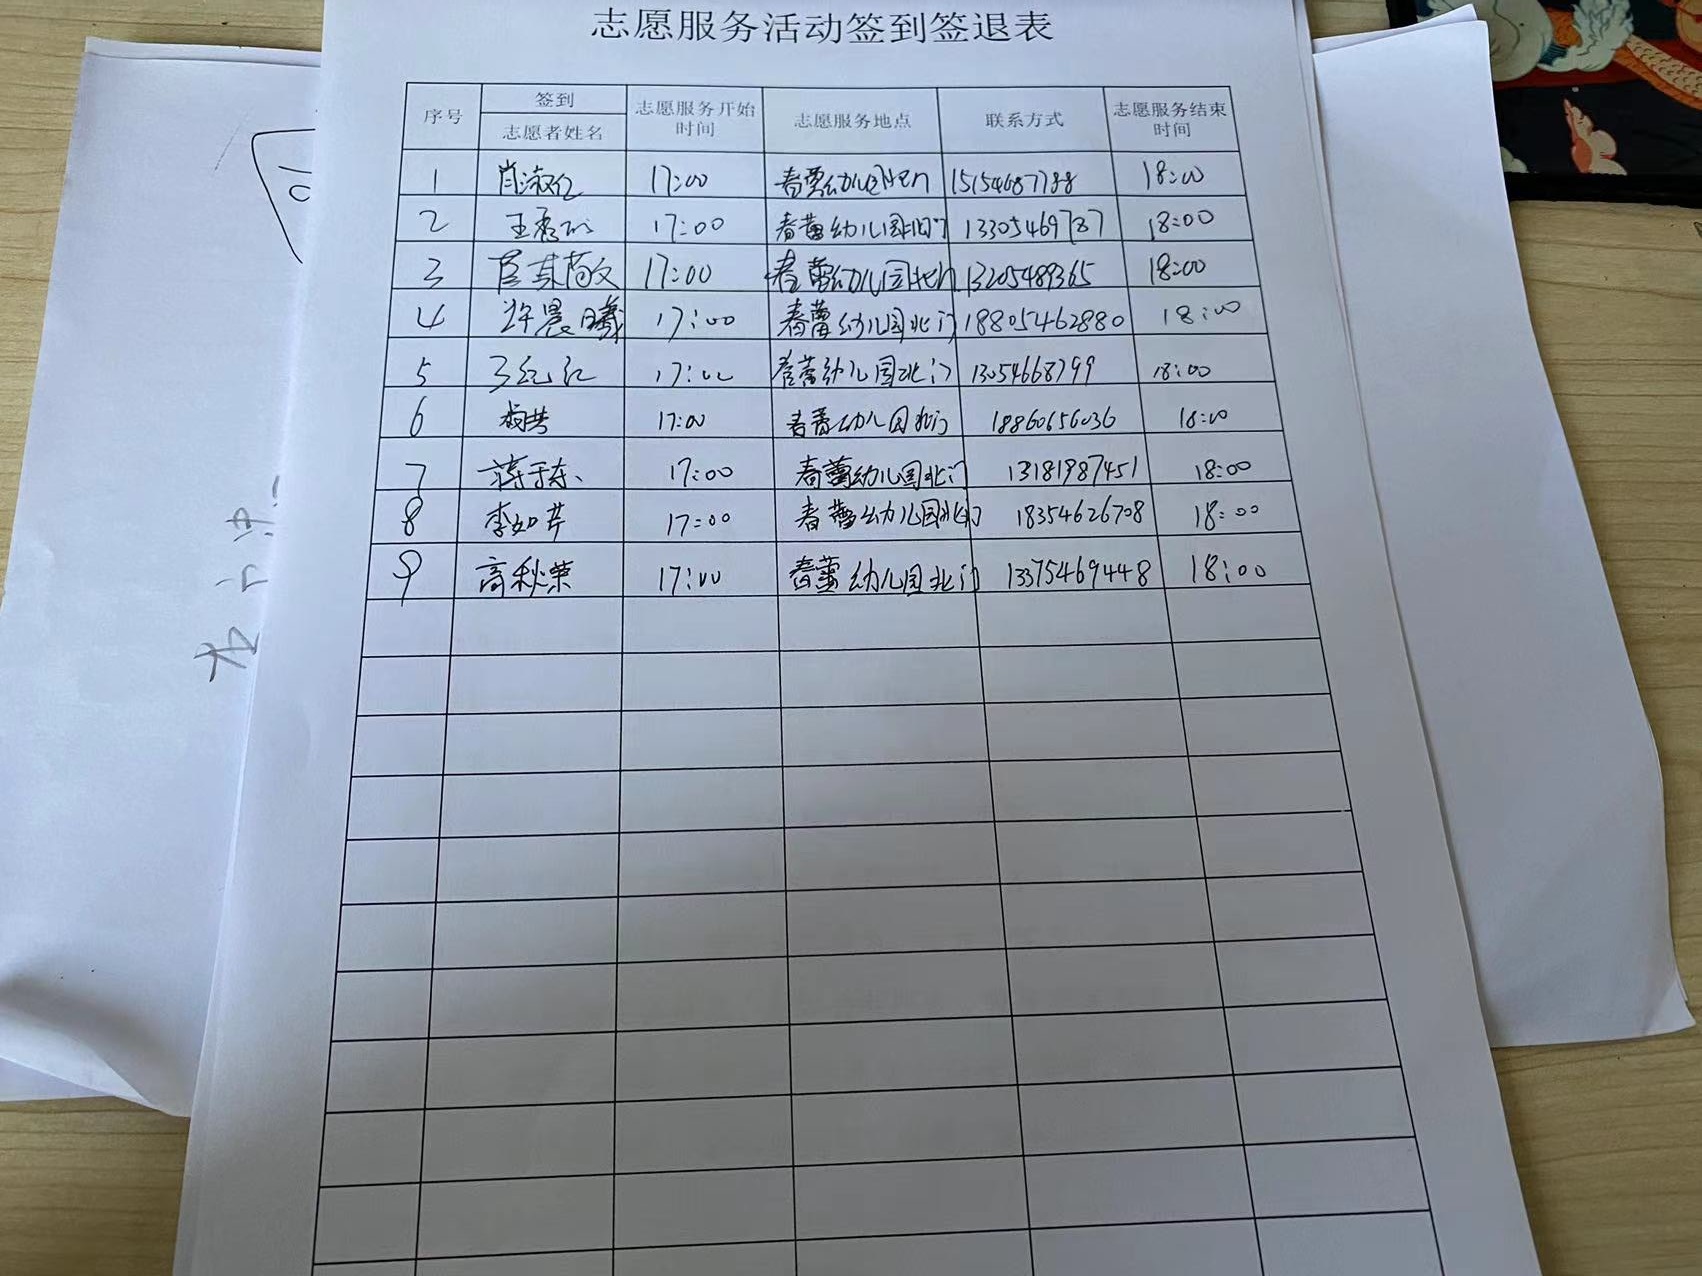 志愿服务活动签到签退表
序号 签到 志愿者姓名 志愿服务开始时间 志愿服务地点 联系方式 志愿服务结束时间
1 肖淑 17:00 春蕾幼儿园北门 18:00
2 王秀 17:00 春蕾幼儿园北门 13305469787 18:00
3 17:00 春蕾幼儿园北门 13205489365 18:00
4 许晨曦 17:00 春蕾幼儿园北门 18805462880 18:00
5 17:00 春蕾幼儿园北门 13054668799 18:00
6 17:00 春蕾幼儿园北门 18860656036 18:00
7 蒋于东 17:00 春蕾幼儿园北门 13181987451 18:00
8 李如芹 17:00 春蕾幼儿园北门 18354626708 18:00
9 高秋荣 17:00 春蕾幼儿园北门 13375469448 18:00